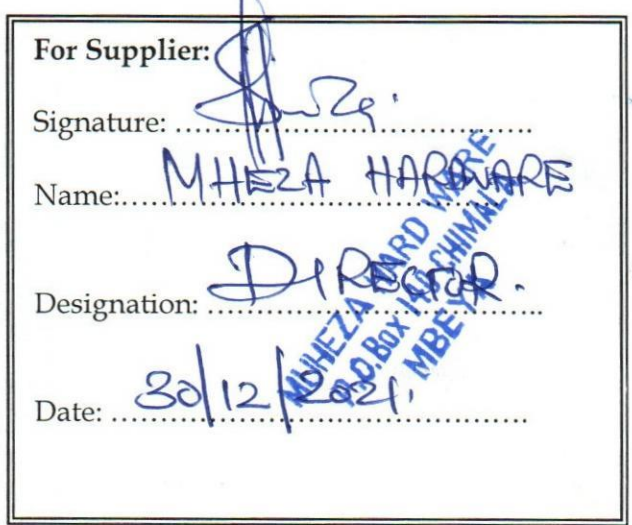 For Supplier:
Signature: ....................
Name: MHEZA HARDWARE
Designation: DIRECTOR.
Date: 30/12/2021.
MUHEZA HARD WARE
P.O.Box 140 CHIMALA
MBEYA